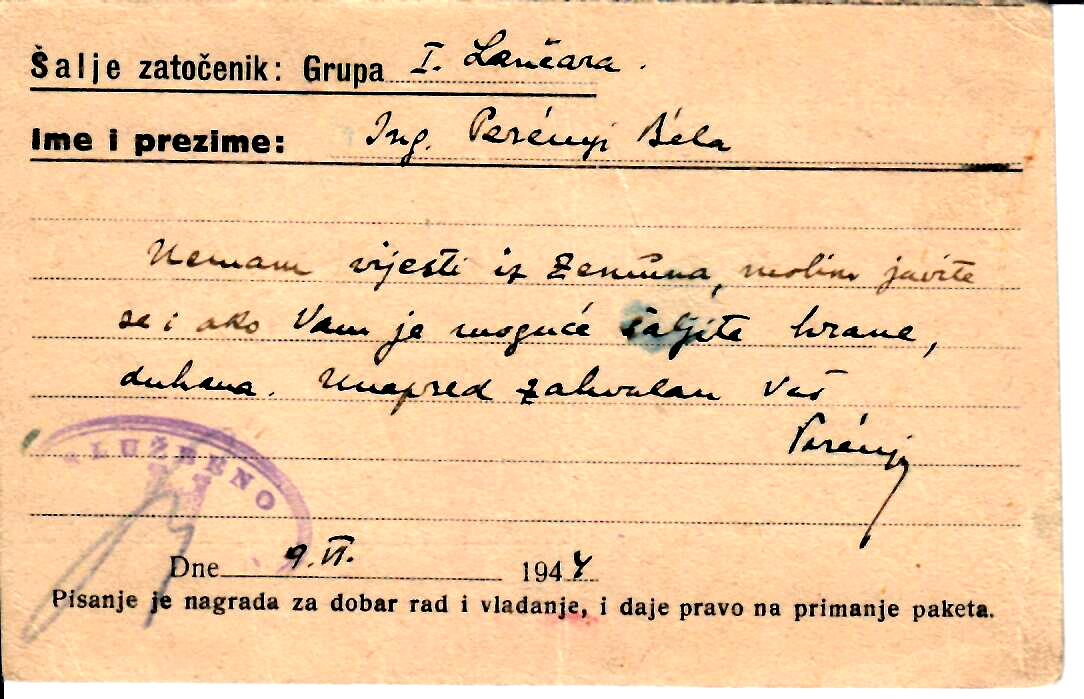 Šalje zatočenik: Grupa I. Lančara.
Ime i prezime: Ing. Perényi Béla
Nemam vijesti iz Zemuna, molim javite
se i ako Vam je moguće šaljite hrane,
duhana. Unapred zahvalan Vaš
Perényi
SLUŽBENO
Dne 9. VI. 1944
Pisanje je nagrada za dobar rad i vladanje, i daje pravo na primanje paketa.